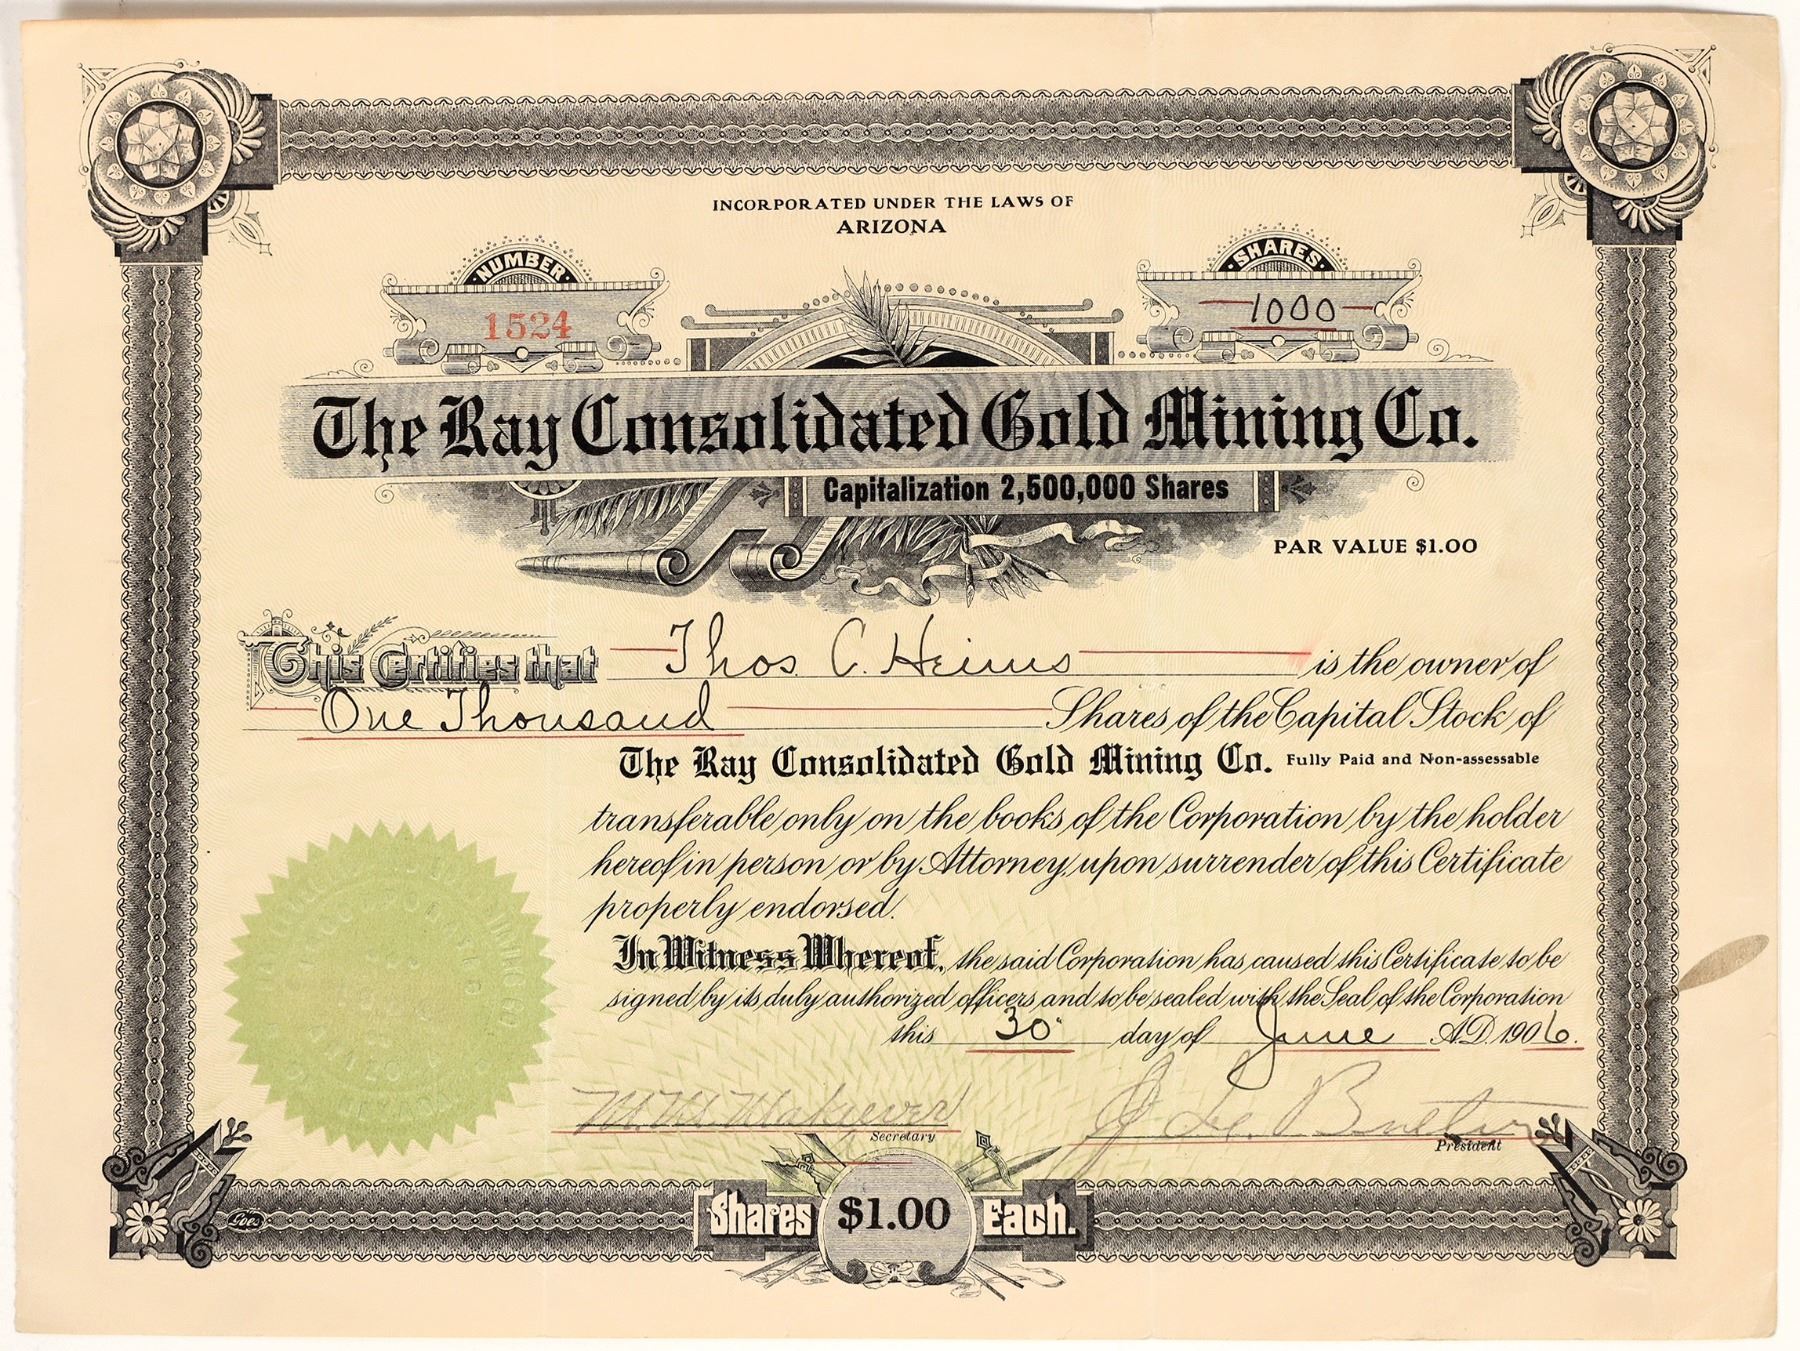 INCORPORATED UNDER THE LAWS OF
ARIZONA
NUMBER
1524
SHARES
1000
The Ray Consolidated Gold Mining Co.
Capitalization 2,500,000 Shares
PAR VALUE $1.00
This Certifies that Thos. C. Heims is the owner of
One Thousand Shares of the Capital Stock of
The Ray Consolidated Gold Mining Co. Fully Paid and Non-assessable
transferable only on the books of the Corporation by the holder
hereof in person or by Attorney upon surrender of this Certificate
properly endorsed.
In Witness Whereof, the said Corporation has caused this Certificate to be
signed by its duly authorized officers and to be sealed with the Seal of the Corporation
this 30" day of June A.D. 1906.
Secretary
President
Goes
Shares $1.00 Each.